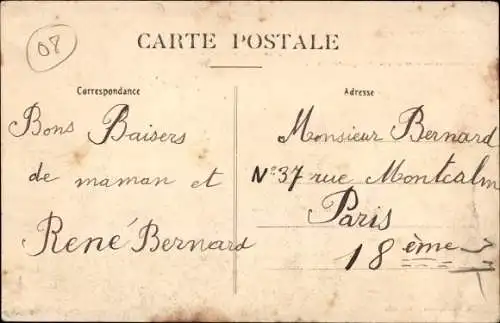 08
CARTE POSTALE
Correspondance
Adresse
Bons Baisers
de maman et
René Bernard
Monsieur Bernard
N° 37 rue Montcalm
Paris
18 ème